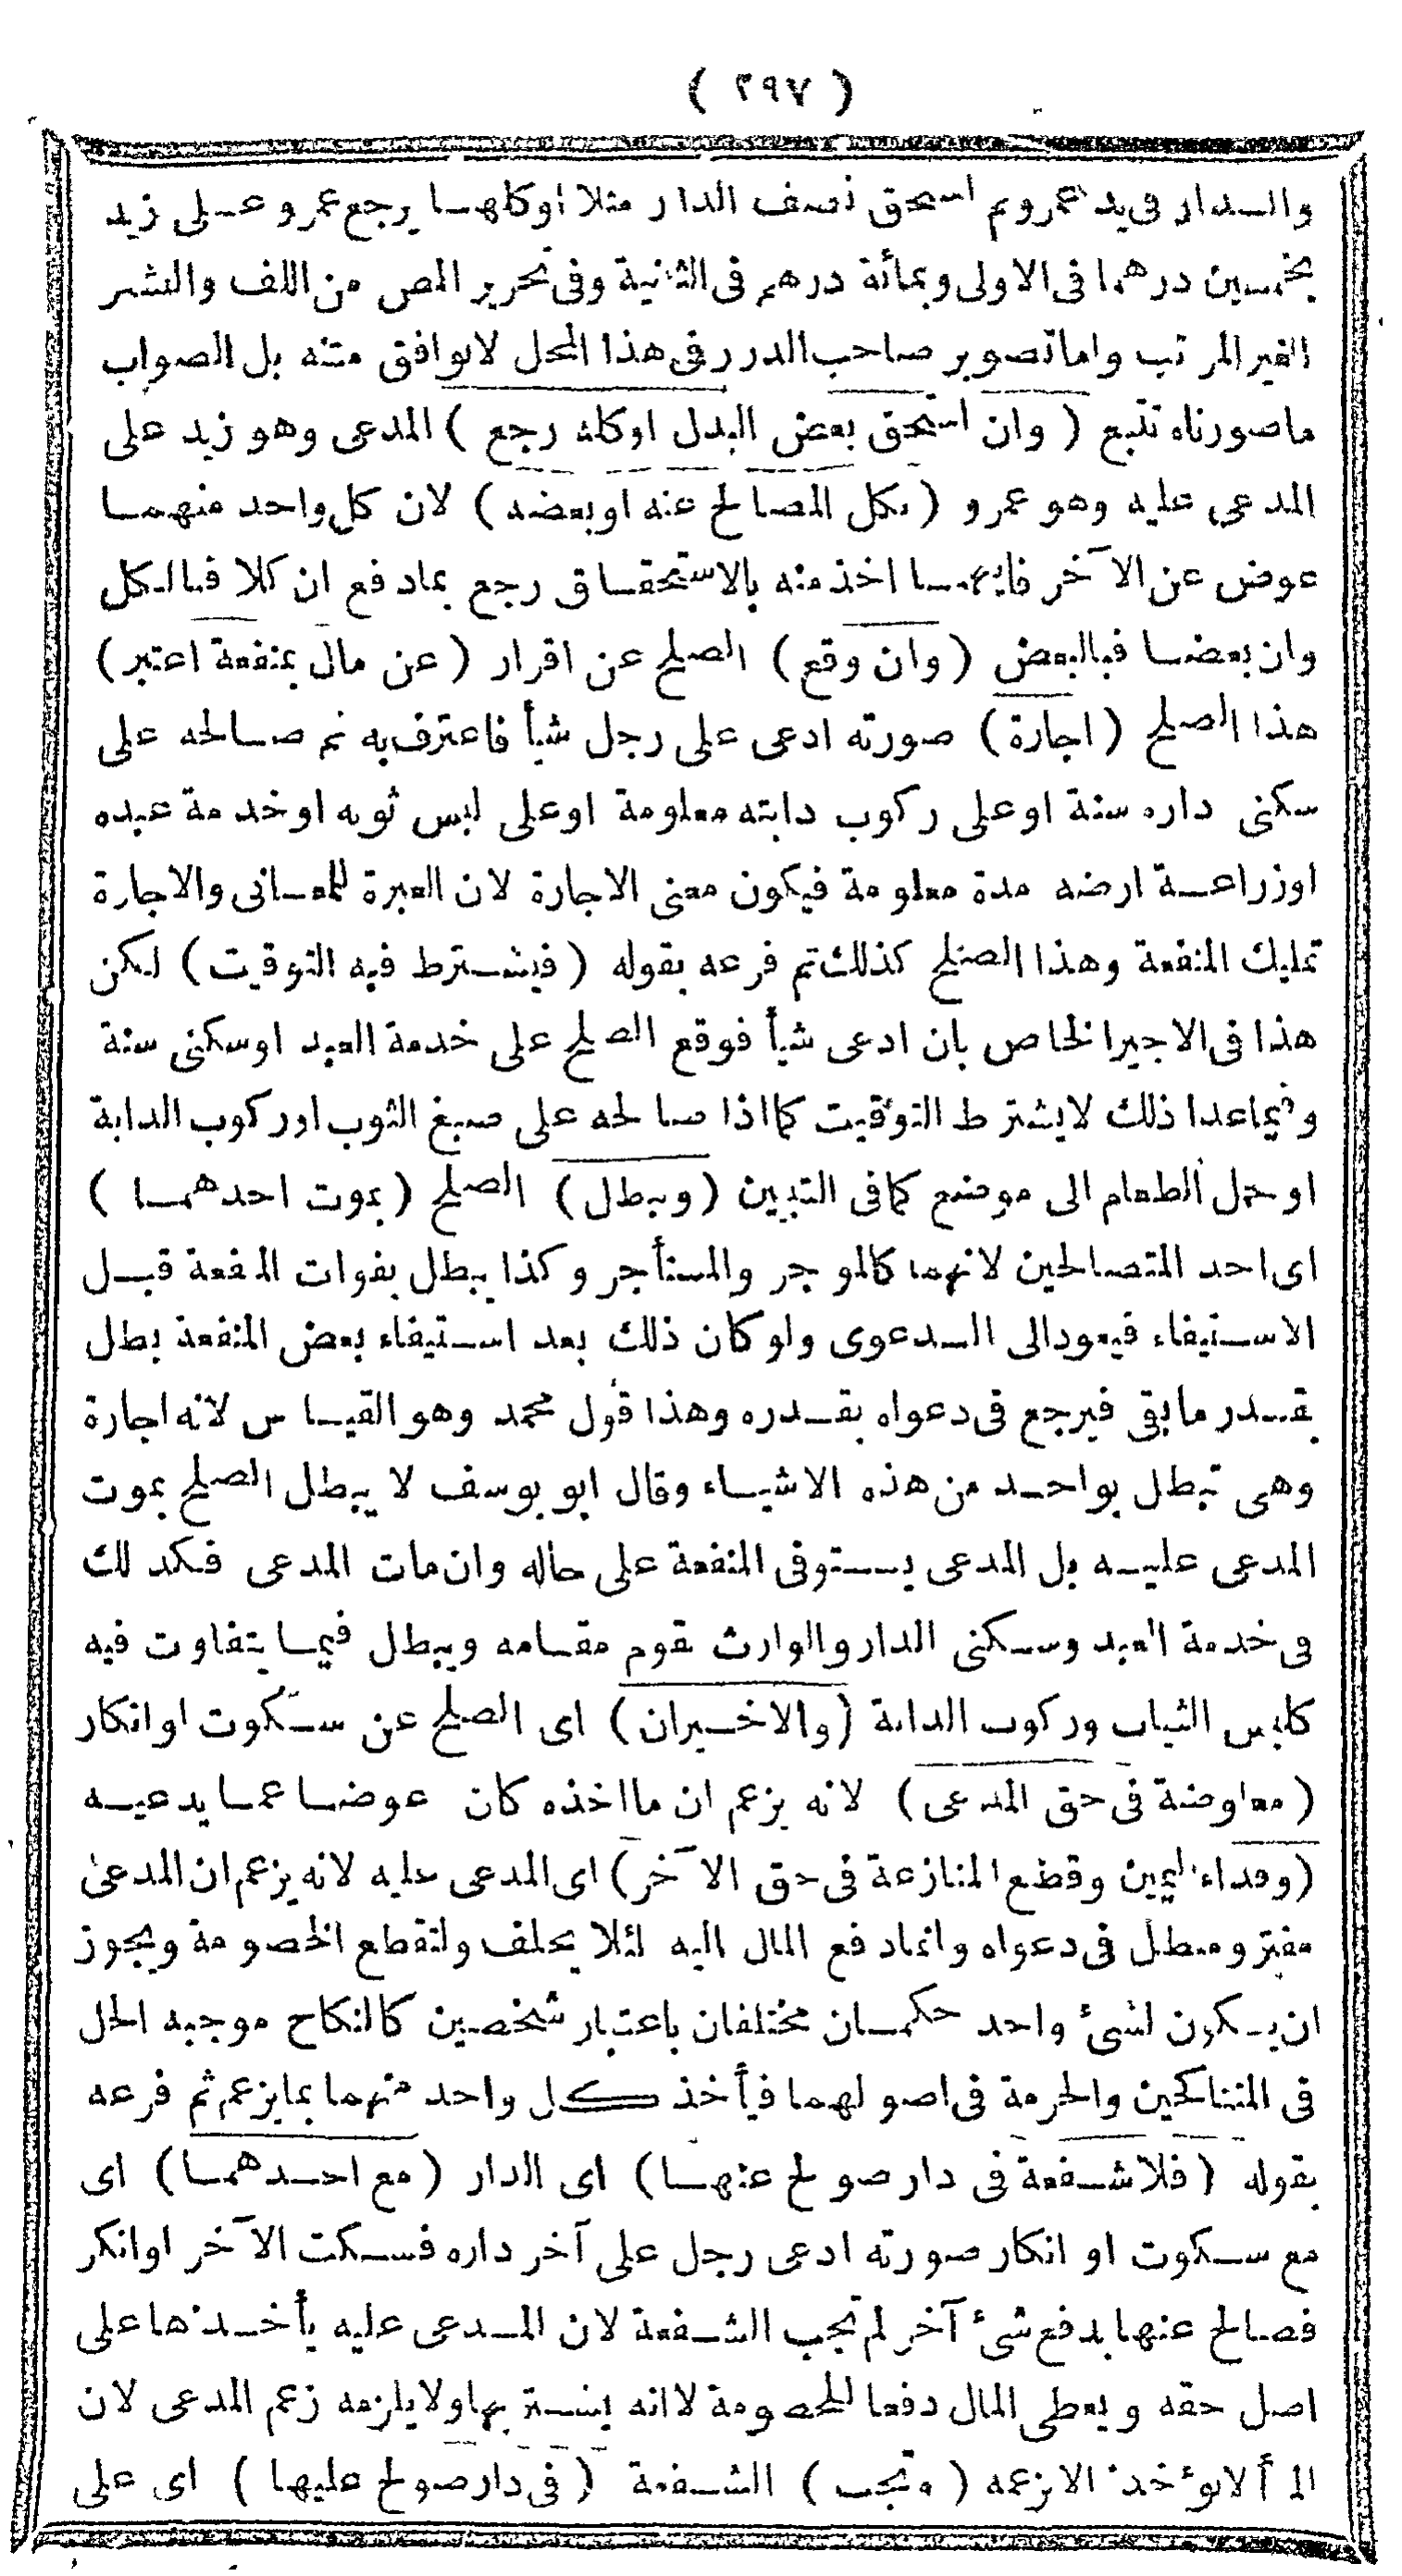 ( ٢٩٧ )
والدار فى يد عمرو ثم استحق نصف الدار مثلا اوكلها يرجع عمرو على زيد
بخمسين درهما فى الاولى وبمائة درهم فى الثانية وفى تحرير المص من اللف والنشر
الغير المرتب واما تصوير صاحب الدرر فى هذا المحل لايوافق متنه بل الصواب
ماصورناه تتبع ( وان استحق بعض البدل اوكله رجع ) المدعى وهو زيد على
المدعى عليه وهو عمرو ( بكل المصالح عنه اوبعضه ) لان كل واحد منهما
عوض عن الآخر فايهما اخذ منه بالاستحقاق رجع بمادفع ان كلا فبالكل
وان بعضا فبالبعض ( وان وقع ) الصلح عن اقرار ( عن مال بمنفعة اعتبر )
هذا الصلح ( اجارة ) صورته ادعى على رجل شيأ فاعترف به ثم صالحه على
سكنى داره سنة اوعلى ركوب دابته معلومة اوعلى لبس ثوبه اوخدمة عبده
اوزراعة ارضه مدة معلومة فيكون معنى الاجارة لان العبرة للمعانى والاجارة
تمليك المنفعة وهذا الصلح كذلك ثم فرعه بقوله ( فيشترط فيه التوقيت ) لكن
هذا فى الاجير الخاص بان ادعى شيأ فوقع الصلح على خدمة العبد اوسكنى سنة
وفيماعدا ذلك لايشترط التوقيت كما اذا صالحه على صبغ الثوب اوركوب الدابة
اوحمل الطعام الى موضع كمافى التبيين ( ويبطل ) الصلح ( بموت احدهما )
اى احد المتصالحين لانهما كالموجر والمستأجر وكذا يبطل بفوات المنفعة قبل
الاستيفاء فيعود الى الدعوى ولوكان ذلك بعد استيفاء بعض المنفعة بطل
بقدر مابقى فيرجع فى دعواه بقدره وهذا قول محمد وهو القياس لانه اجارة
وهى تبطل بواحد من هذه الاشياء وقال ابو يوسف لا يبطل الصلح بموت
المدعى عليه بل المدعى يستوفى المنفعة على حاله وان مات المدعى فكذلك
فى خدمة العبد وسكنى الدار والوارث يقوم مقامه ويبطل فيما يتفاوت فيه
كلبس الثياب وركوب الدابة ( والاخيران ) اى الصلح عن سكوت اوانكار
( معاوضة فى حق المدعى ) لانه يزعم ان مااخذه كان عوضا عما يدعيه
( وفداء اليمين وقطع المنازعة فى حق الآخر ) اى المدعى عليه لانه يزعم ان المدعى
مفتر ومبطل فى دعواه وانمادفع المال اليه لئلا يحلف ولتقطع الخصومة ويجوز
ان يكون لشئ واحد حكمان مختلفان باعتبار شخصين كالنكاح موجبه الحل
فى المتناكحين والحرمة فى اصولهما فيأخذ كل واحد منهما بمايزعم ثم فرعه
بقوله ( فلاشفعة فى دار صولح عنها ) اى الدار ( مع احدهما ) اى
مع سكوت او انكار صورته ادعى رجل على آخر داره فسكت الآخر اوانكر
فصالح عنها بدفع شئ آخر لم تجب الشفعة لان المدعى عليه يأخذها على
اصل حقه ويعطى المال دفعا للخصومة لاانه يشتريها ولايلزمه زعم المدعى لان
المرأ لايؤخذ الابزعمه ( وتجب ) الشفعة ( فى دار صولح عليها ) اى على